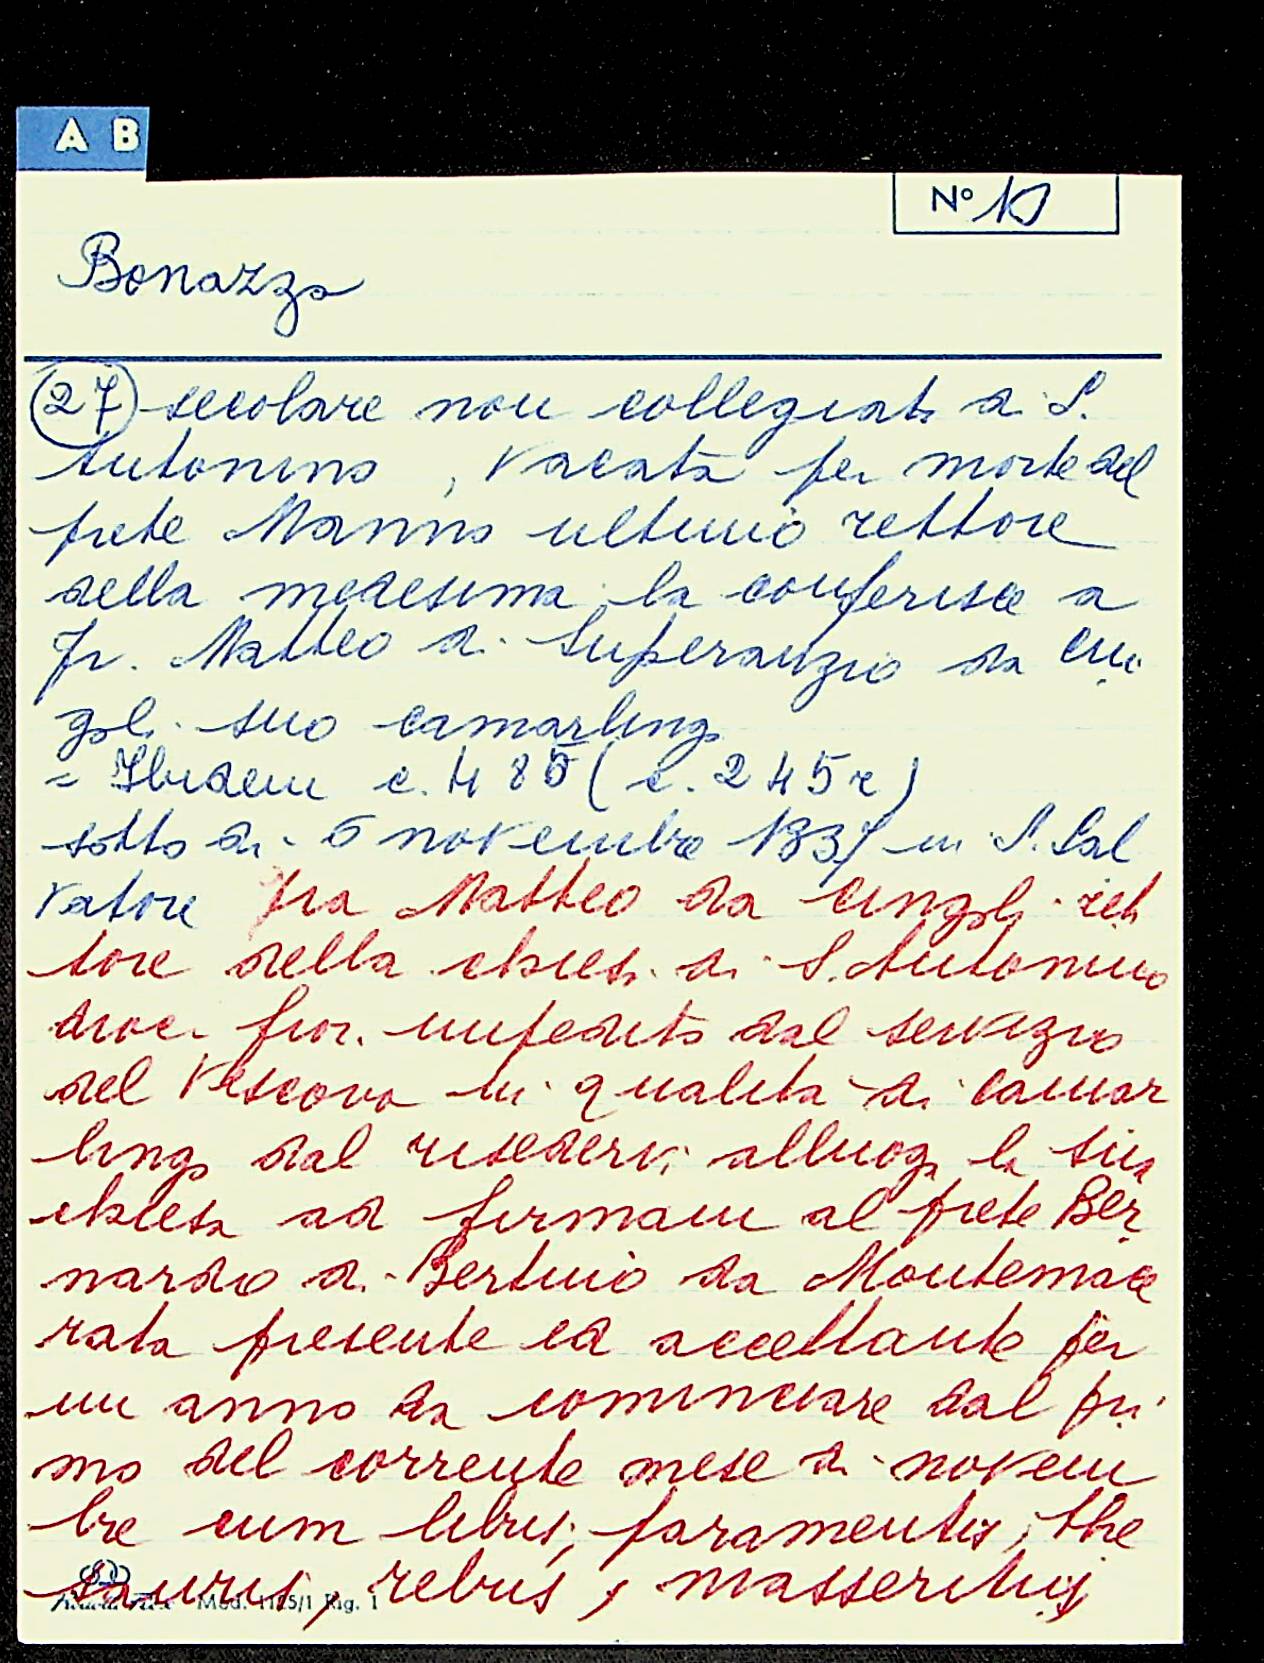 A B
Nº 10
Bonazza
27 secolare non collegiata di S.
Antonino, vacata per morte del
prete Manno ultimo rettore
della medesima, la conferisce a
fr. Matteo di Superanzio da Cin
goli suo camarlingo
= Ibidem c. 485 (c. 245r)
sotto di 5 novembre 1337 in S. Sal
vatore Fra Matteo da Cingoli ret
tore della chiesa di S. Antonino
dioc. fior. impedito dal servizio
del Vescovo in qualità di camar
lingo dal risedervi alluoga la sua
chiesa ad firmam al prete Ber
nardo di Bertino da Montemace
rata presente ed accettante per
un anno da cominciare dal pri
mo del corrente mese di novem
bre cum libris, paramentis, the
sauris, rebus, masseritiis
Mod. 1185/1 Rig. 1